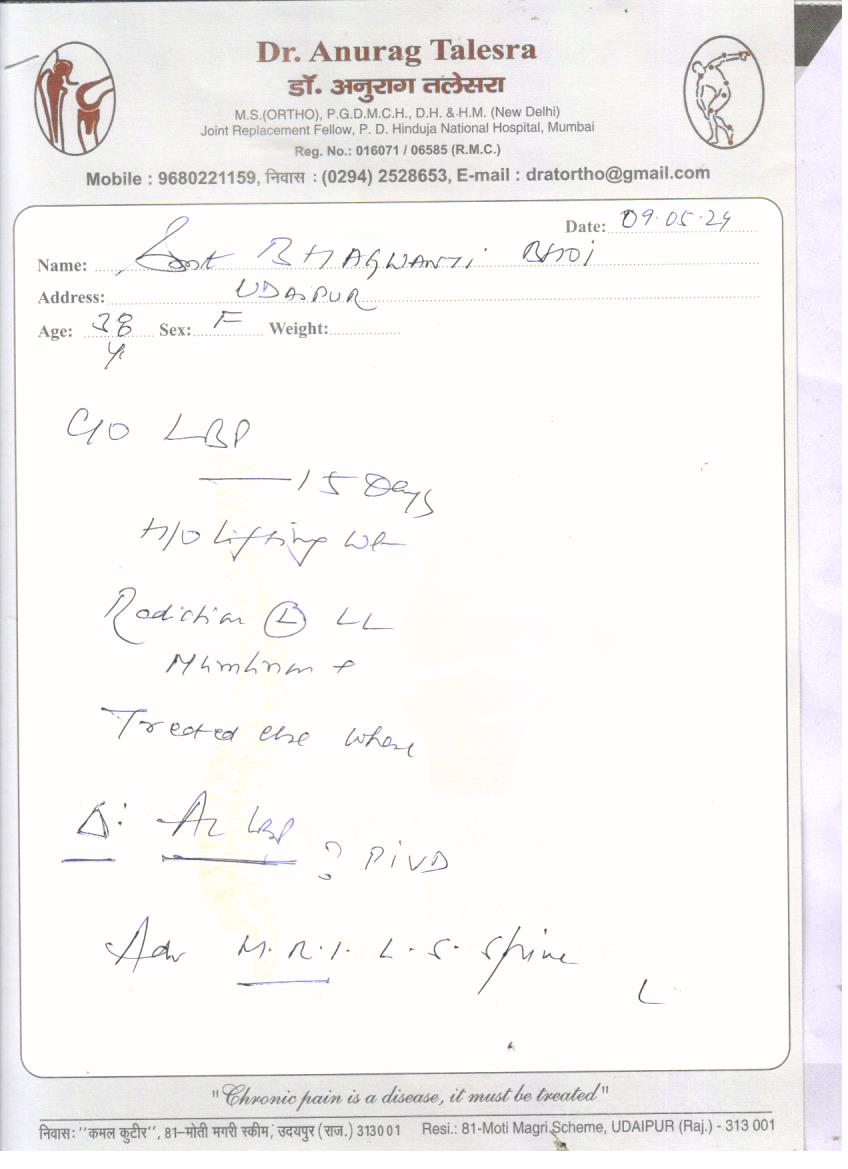 Dr. Anurag Talesra
डॉ. अनुराग तलेसरा
M.S.(ORTHO), P.G.D.M.C.H., D.H. & H.M. (New Delhi)
Joint Replacement Fellow, P. D. Hinduja National Hospital, Mumbai
Reg. No.: 016071 / 06585 (R.M.C.)
Mobile : 9680221159, निवास : (0294) 2528653, E-mail : dratortho@gmail.com
Date: 09.05.24
Name: Smt BHAGWANTI BHOI
Address: UDAIPUR
Age: 38 Sex: F Weight:
Yr
C/O LBP
15 Days
H/O Lifting wt
Radiation (L) LL
Treated else where
Δ: Ac LBP
? PIVD
Adv M.R.I. L.S. Spine
"Chronic pain is a disease, it must be treated"
निवासः "कमल कुटीर", 81–मोती मगरी स्कीम, उदयपुर (राज.) 313001 Resi.: 81-Moti Magri Scheme, UDAIPUR (Raj.) - 313 001